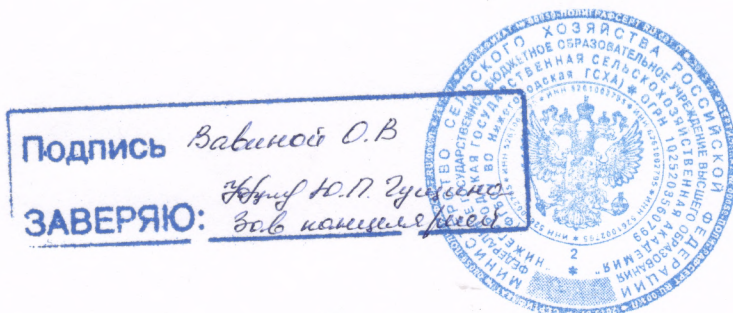 Подпись Вавиной О.В
Ю.П. Гущина
ЗАВЕРЯЮ: Зав канцелярией
МИНИСТЕРСТВО СЕЛЬСКОГО ХОЗЯЙСТВА РОССИЙСКОЙ ФЕДЕРАЦИИ
ФЕДЕРАЛЬНОЕ ГОСУДАРСТВЕННОЕ БЮДЖЕТНОЕ ОБРАЗОВАТЕЛЬНОЕ УЧРЕЖДЕНИЕ ВЫСШЕГО ОБРАЗОВАНИЯ
"НИЖЕГОРОДСКАЯ ГОСУДАРСТВЕННАЯ СЕЛЬСКОХОЗЯЙСТВЕННАЯ АКАДЕМИЯ"
ВО НИЖЕГОРОДСКАЯ ГСХА) * ОГРН 1025203560799
2